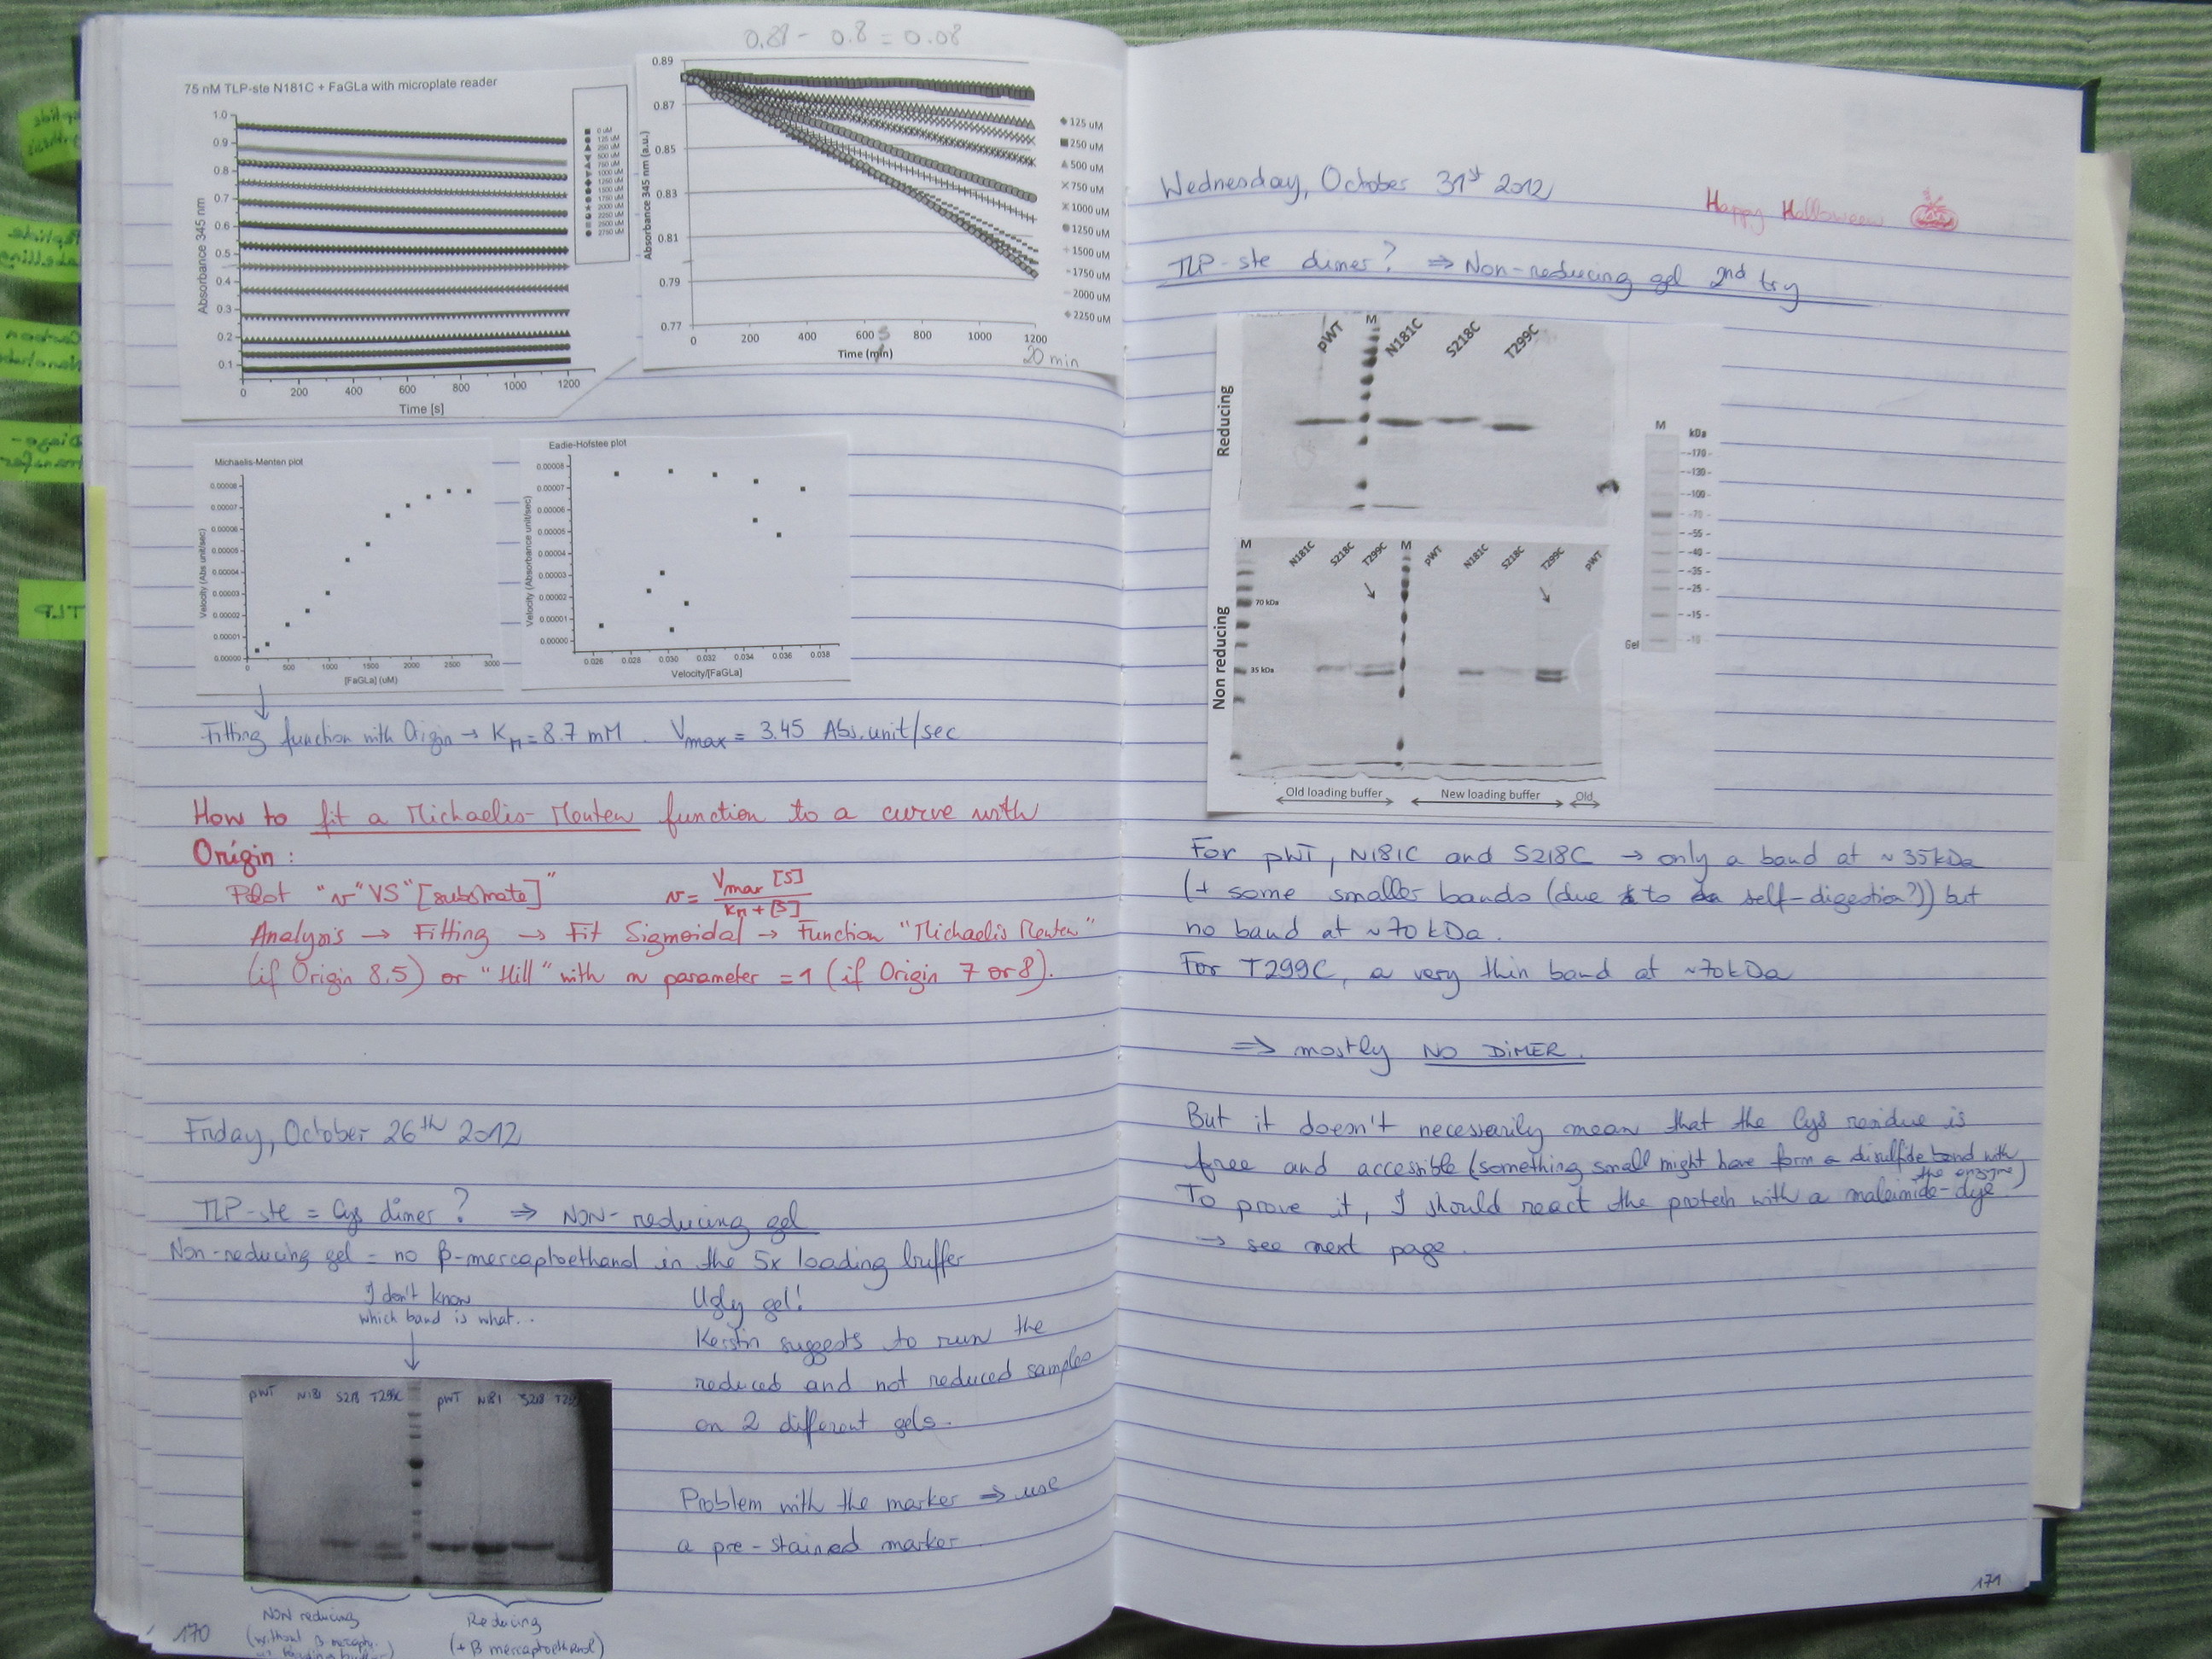 0.88 - 0.8 = 0.08
75 nM TLP-ste N181C + FaGLa with microplate reader
Absorbance 345 nm
1.0
0.9
0.8
0.7
0.6
0.5
0.4
0.3
0.2
0.1
0 200 400 600 800 1000 1200
Time [s]
0 uM
125 uM
250 uM
500 uM
750 uM
1000 uM
1250 uM
1500 uM
1750 uM
2000 uM
2250 uM
2500 uM
2750 uM
Absorbance 345 nm (a.u.)
0.89
0.87
0.85
0.83
0.81
0.79
0.77
0 200 400 600 800 1000 1200
Time (min)
s
20 min
125 uM
250 uM
500 uM
750 uM
1000 uM
1250 uM
1500 uM
1750 uM
2000 uM
2250 uM
Michaelis-Menten plot
Velocity (Abs unit/sec)
0.00008
0.00007
0.00006
0.00005
0.00004
0.00003
0.00002
0.00001
0.00000
0 500 1000 1500 2000 2500 3000
[FaGLa] (uM)
Eadie-Hofstee plot
Velocity (Absorbance unit/sec)
0.00008
0.00007
0.00006
0.00005
0.00004
0.00003
0.00002
0.00001
0.00000
0.026 0.028 0.030 0.032 0.034 0.036 0.038
Velocity/[FaGLa]
Fitting function with Origin → KM = 8.7 mM. Vmax = 3.45 Abs.unit/sec
How to fit a Michaelis-Menten function to a curve with
Origin :
Plot "v" VS "[substrate]" v = Vmax [S] / KM + [S]
Analysis → Fitting → Fit Sigmoidal → Function "Michaelis Menten"
(if Origin 8.5) or "Hill" with n parameter = 1 (if Origin 7 or 8).
Friday, October 26th 2012
TLP-ste = Cys dimer ? ⇒ NON-reducing gel
Non-reducing gel = no β-mercaptoethanol in the 5x loading buffer
I don't know
which band is what...
Ugly gel!
Kerstin suggests to run the
reduced and not reduced samples
on 2 different gels.
Problem with the marker ⇒ use
a pre-stained marker.
pWT N181 S218 T299C pWT N181 S218 T299
NON reducing
(without β mercapto.
Reducing
(+ β mercaptoethanol)
170
TLP
Wednesday, October 31st 2012
Happy Halloween
TLP-ste dimer? ⇒ Non-reducing gel 2nd try
Reducing
pWT M N181C S218C T299C
M kDa
-170-
-130-
-100-
-70-
-55-
-40-
-35-
-25-
-15-
-10-
Gel
Non reducing
M N181C S218C T299C M pWT N181C S218C T299C pWT
70 kDa
35 kDa
Old loading buffer New loading buffer Old
For pWT, N181C and S218C → only a band at ~ 35kDa
(+ some smaller bands (due to self-digestion?)) but
no band at ~70 kDa.
For T299C, a very thin band at ~70kDa
⇒ mostly NO DIMER.
But it doesn't necessarily mean that the Cys residue is
free and accessible (something small might have form a disulfide bond with
the enzyme)
To prove it, I should react the protein with a maleimide-dye.
→ see next page.
171